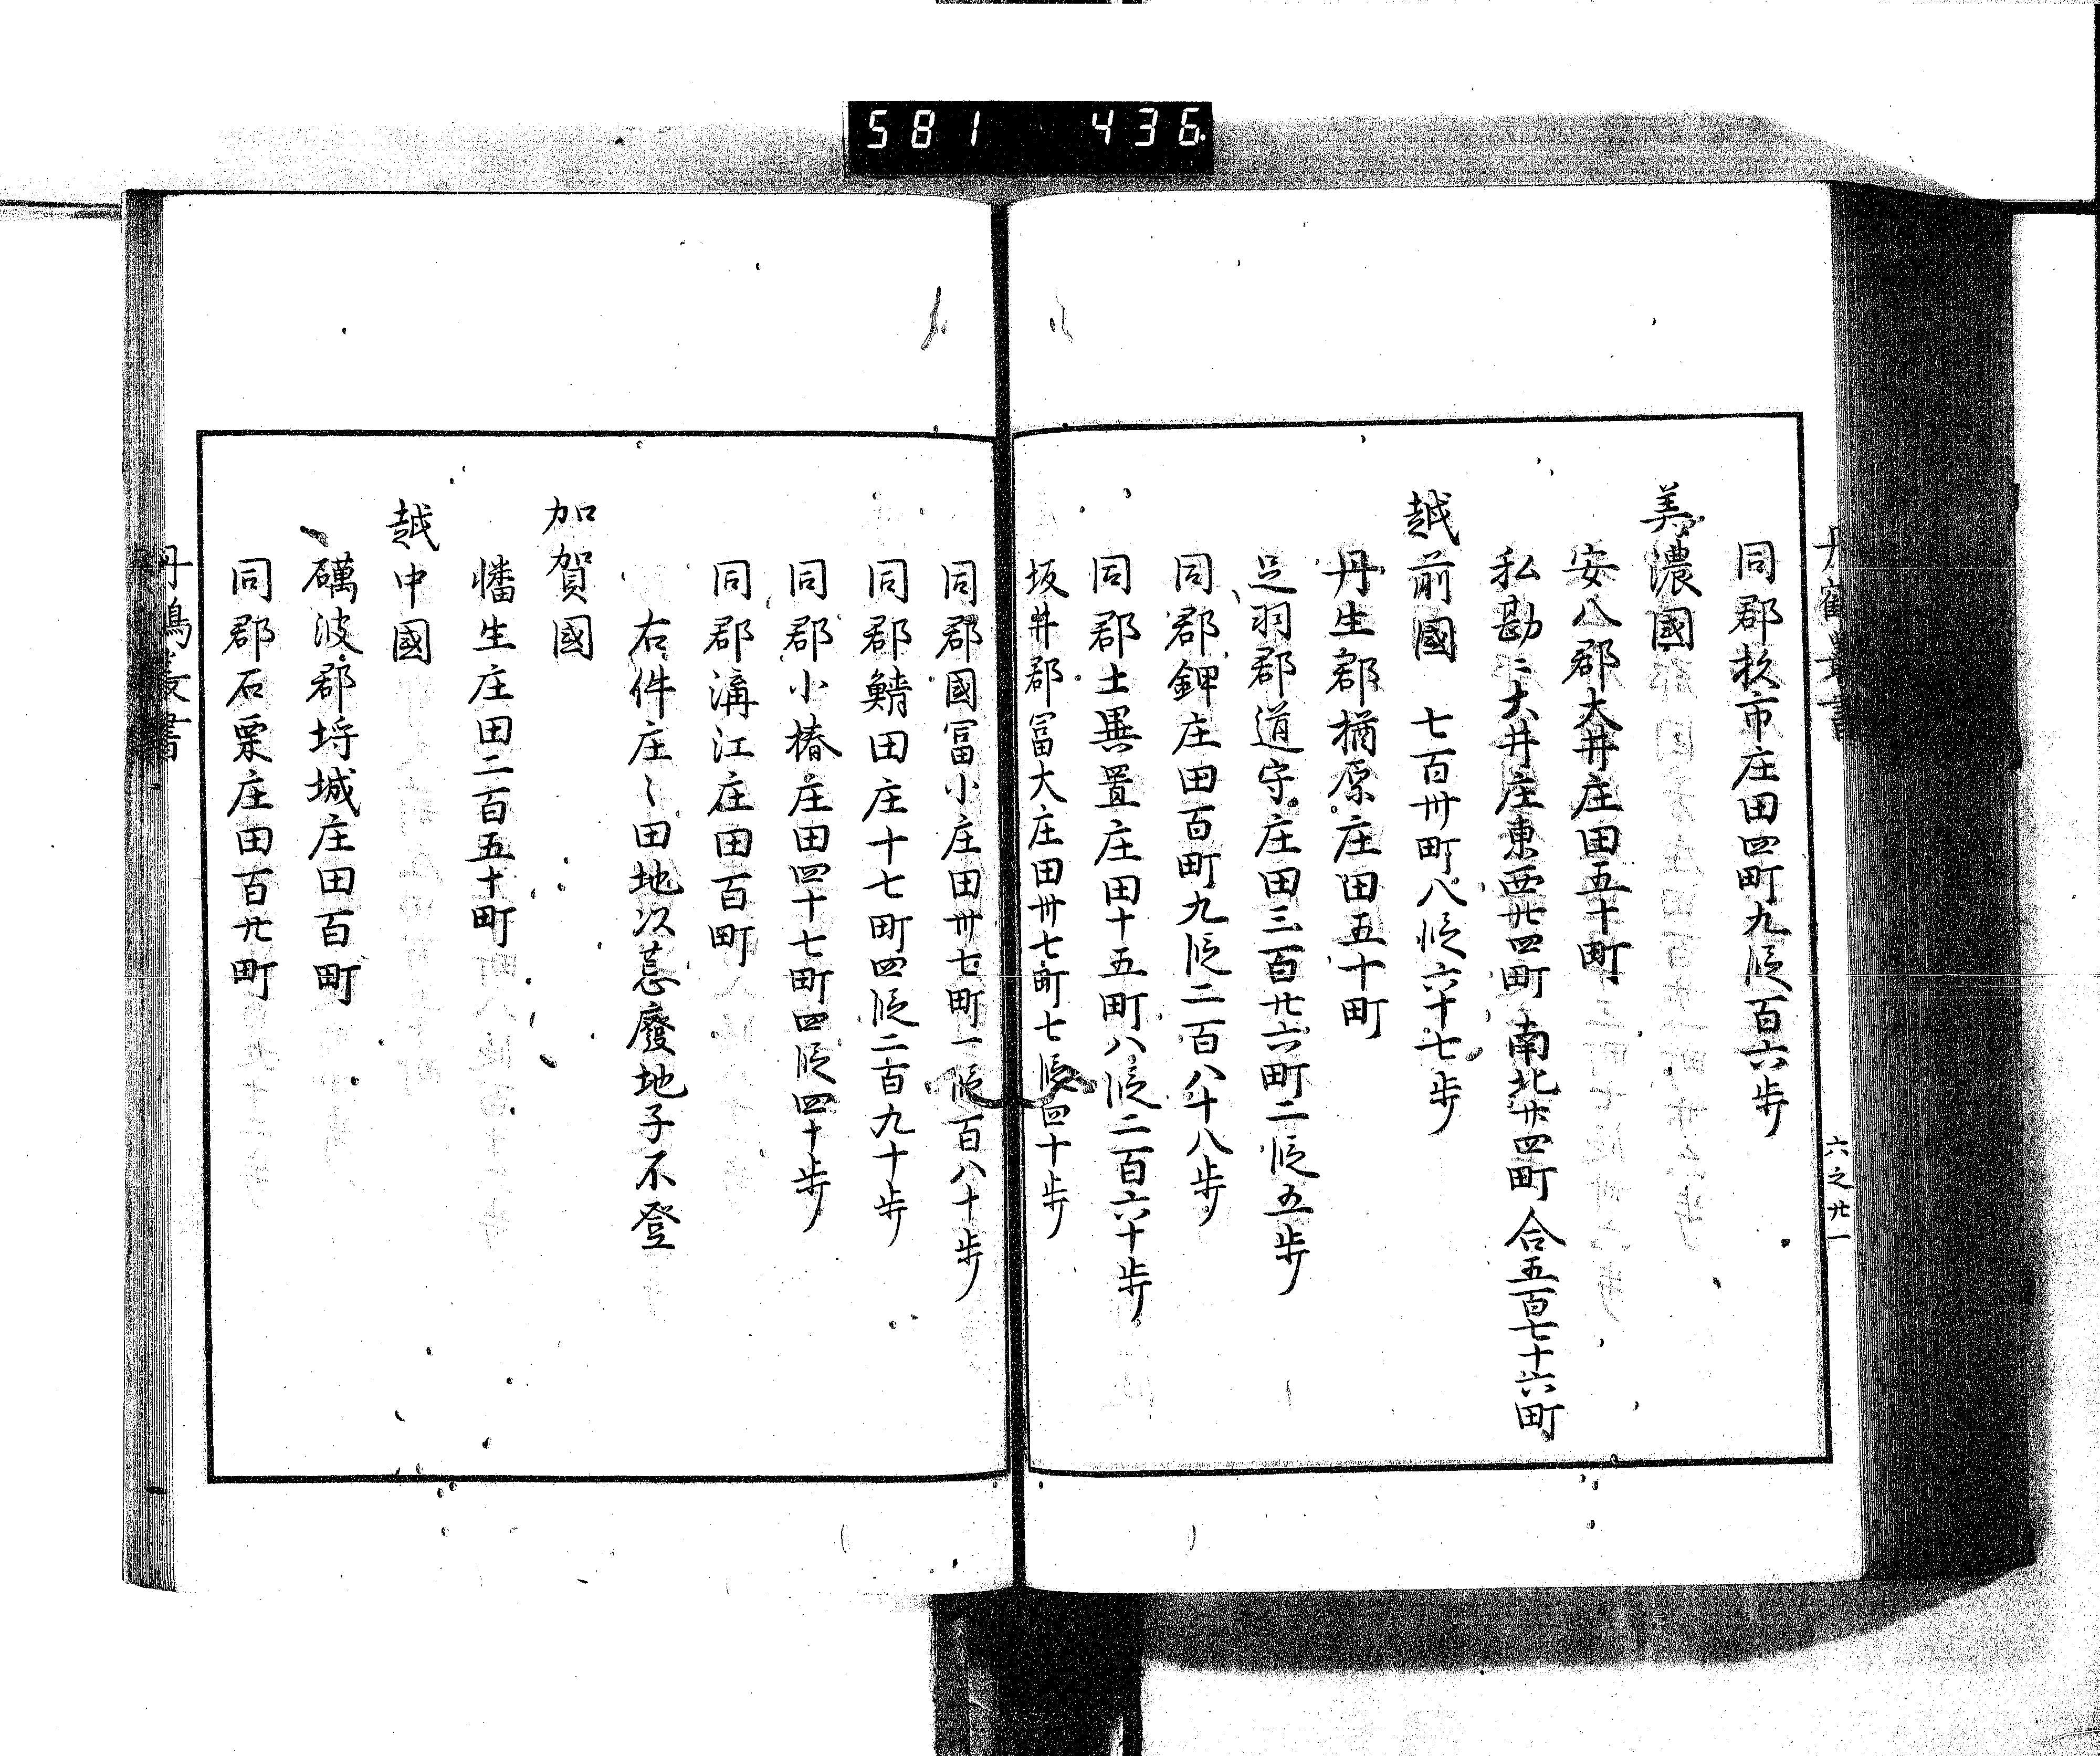 581 436
丹鶴叢書
六之廿一
同郡杦市庄田四町九段百六歩
美濃國
安八郡大井庄田五十町
私勘ニ大井庄東西廿四町南北廿四町合五百七十六町
越前國 七百卅町八段六十七歩
丹生郡楢原庄田五十町
足羽郡道守庄田三百廿六町二段五歩
同郡鉀庄田百町九段二百八十八歩
同郡土異置庄田十五町八段二百六十歩
坂井郡冨大庄田卅七町七段四十歩
同郡國冨小庄田卅七町一段百八十歩
同郡鯖田庄十七町四段二百九十歩
同郡小椿庄田四十七町四段四十歩
同郡溝江庄田百町
右件庄〻田地次荒廢地子不登
加賀國
幡生庄田二百五十町
越中國
礪波郡埓城庄田百町
同郡石粟庄田百廿町
丹鶴叢書